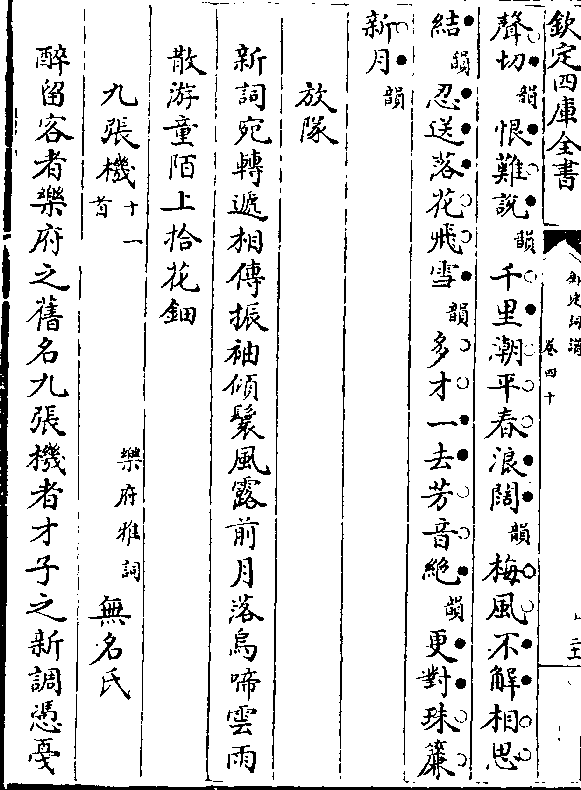 欽定四庫全書
御定詞譜
卷四十
聲切韻恨難說韻千里潮平春浪闊韻梅風不解相思
結韻忍送落花飛雪韻多才一去芳音絕韻更對珠簾
新月韻
放隊
新詞宛轉遞相傳振袖傾鬟風露前月落烏啼雲雨
散游童陌上拾花鈿
九張機十一首
樂府雅詞
無名氏
醉留客者樂府之舊名九張機者才子之新調憑戞